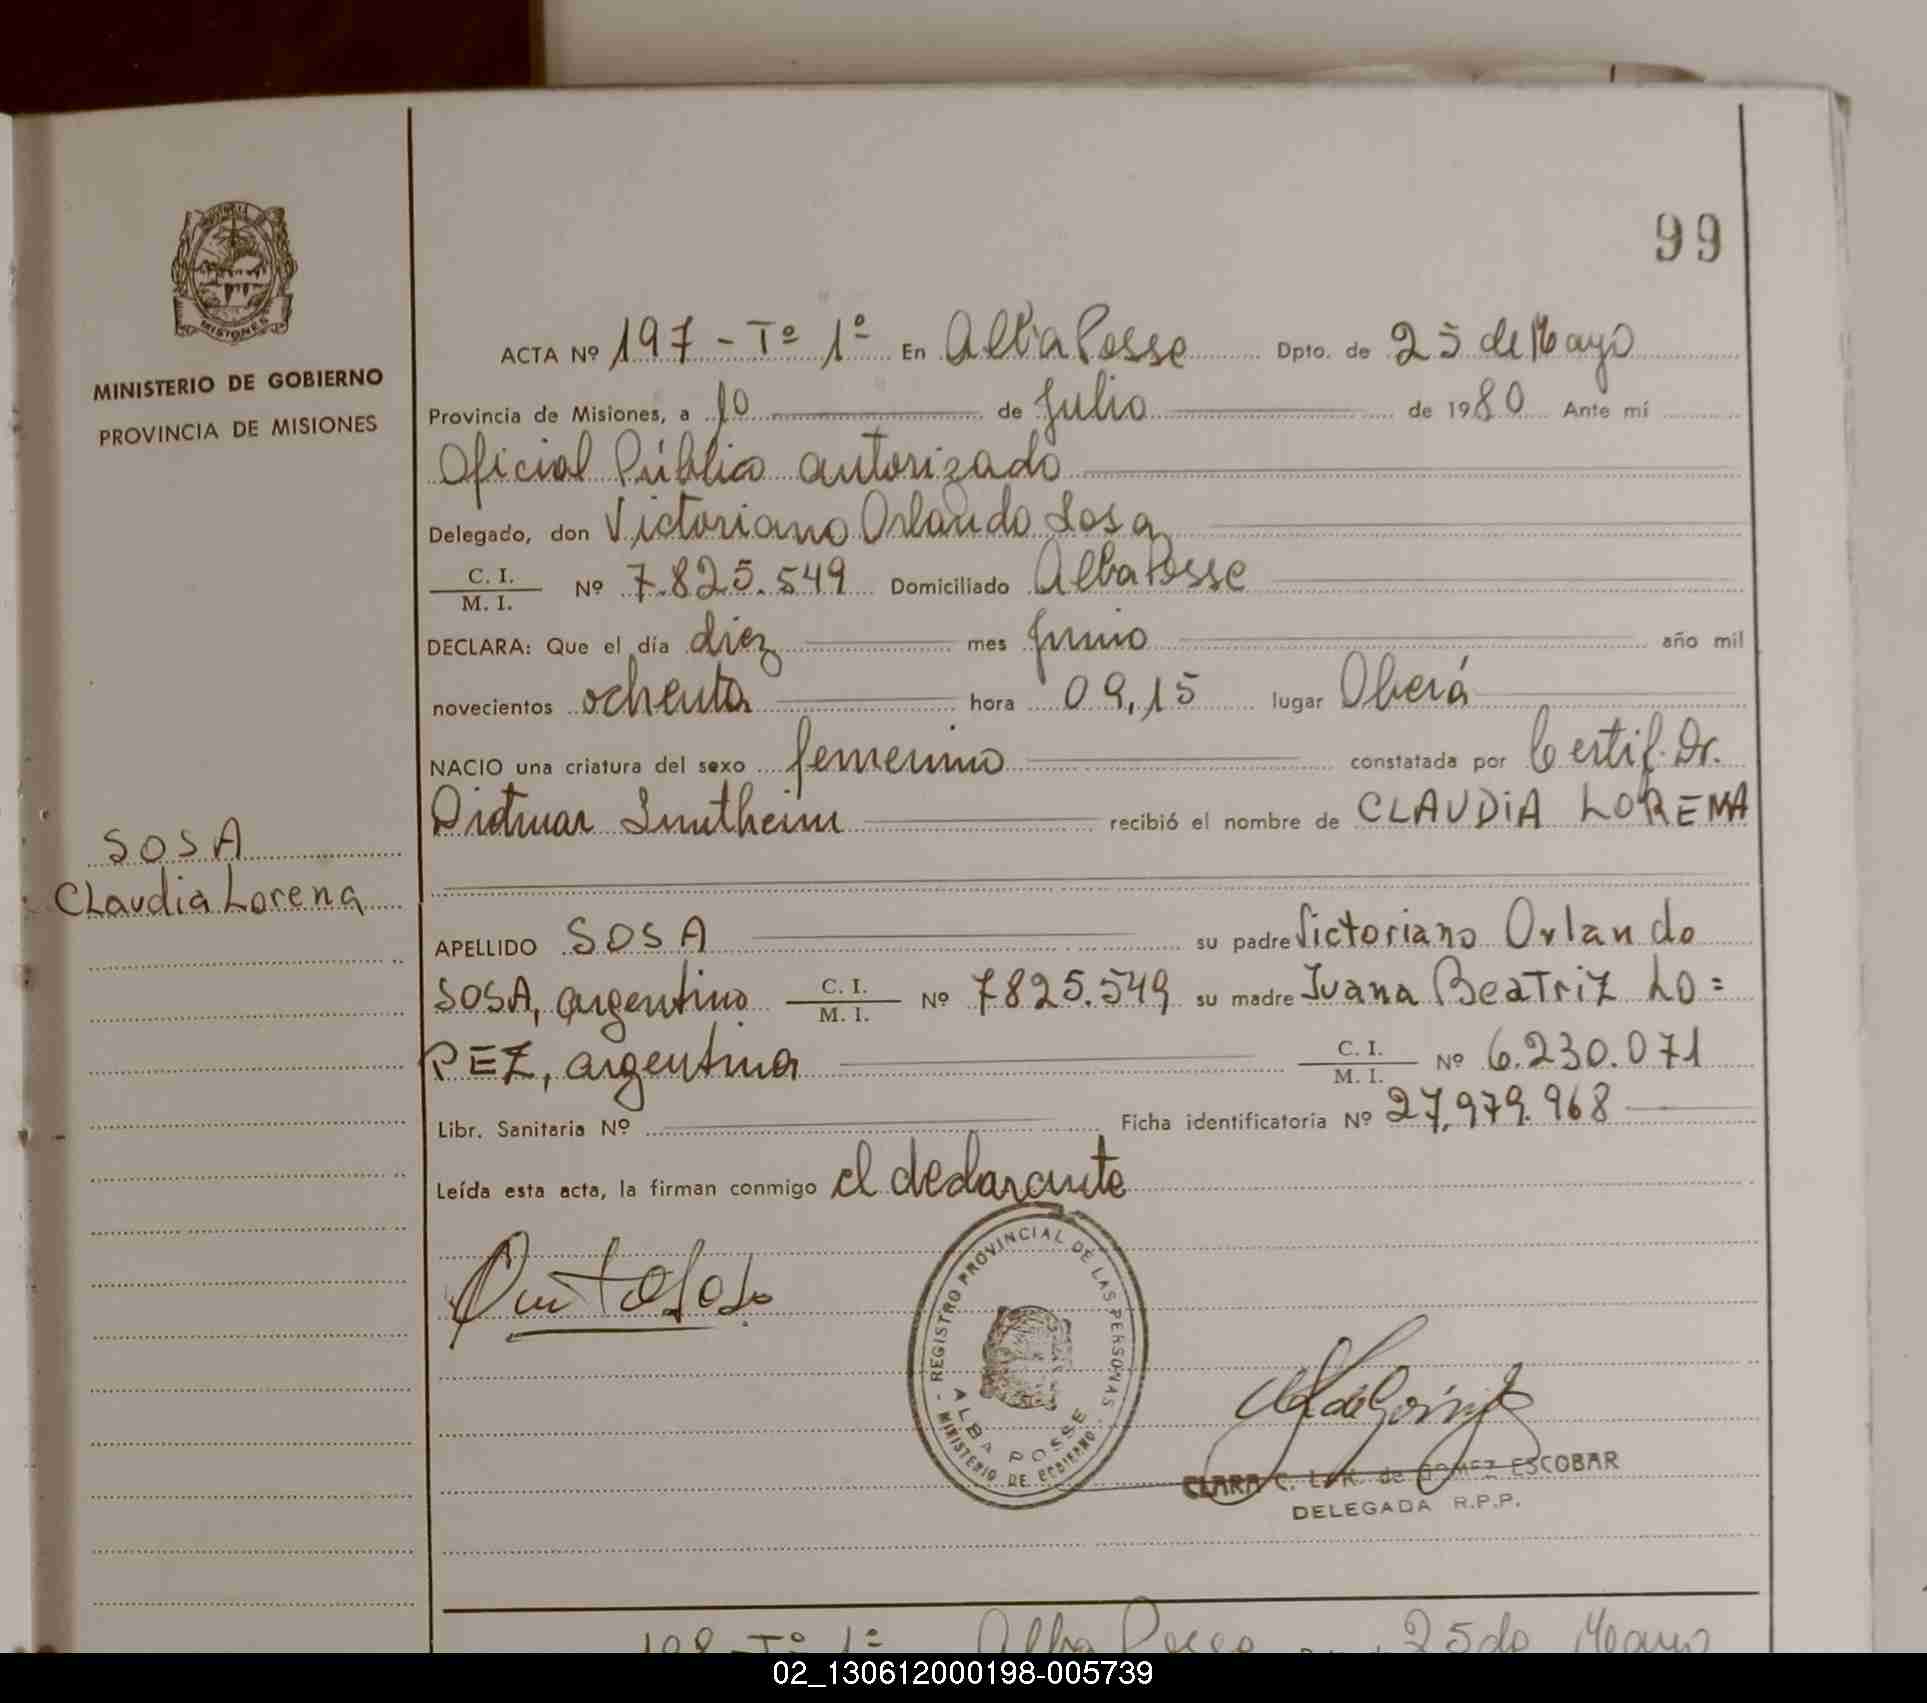 99
MISIONES
MINISTERIO DE GOBIERNO
PROVINCIA DE MISIONES
SOSA
Claudia Lorena
ACTA Nº 197 - Tº 1º En Alba Posse Dpto. de 25 de Mayo
Provincia de Misiones, a 10 de Julio de 1980 Ante mí
Oficial Público autorizado
Delegado, don Victoriano Orlando Sosa
C. I.
M. I. Nº 7.825.549 Domiciliado Alba Posse
DECLARA: Que el día diez mes Junio año mil
novecientos ochenta hora 09,15 lugar Oberá
NACIO una criatura del sexo femenino constatada por Certif. Dr.
recibió el nombre de CLAUDIA LORENA
APELLIDO SOSA su padre Victoriano Orlando
SOSA, argentino C. I. M. I. Nº 7825.549 su madre Juana Beatriz LO=
PEZ, argentina C. I. M. I. Nº 6.230.071
Libr. Sanitaria Nº Ficha identificatoria Nº 27.979.968
Leída esta acta, la firman conmigo el declarante
- REGISTRO PROVINCIAL DE LAS PERSONAS -
ALBA POSSE
MINISTERIO DE GOBIERNO
CLARA C. de GOMEZ ESCOBAR
DELEGADA R.P.P.
198 - Tº 1º Alba Posse 25 de Mayo
02_130612000198-005739